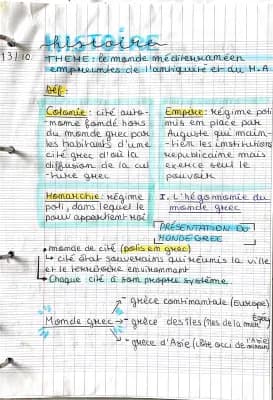 HISTOIRE
histoire
13/10
THEME: le monde méditerranéen
empreintes de l'antiquité et du M.A
Déf:
Colonie: cité auto-
nome fondé hors
du monde grec par
les habitants d'une
cité grec d'où la
diffusion de la cul-
ture grec
Empire: régime poli
mis en place par
Auguste qui main-
tien les institutions
républicaine mais
exerce seul le
pouvoir
Monarchie: régime
poli, dans lequel le
pouv appartient roi
I. L'hégémonie du
monde grec
PRÉSENTATION DU
MONDE GREC
monde de cité (polis en grec)
↳ cité état souverains qui réunis la ville
et le territoire environnant
→ Chaque cité à son propre système.
Monde grec
- grèce continentale (Europe)
- grèce des îles (îles de la mer Egée)
- grèce d'Asie (côte occi de l'Asie mineure)